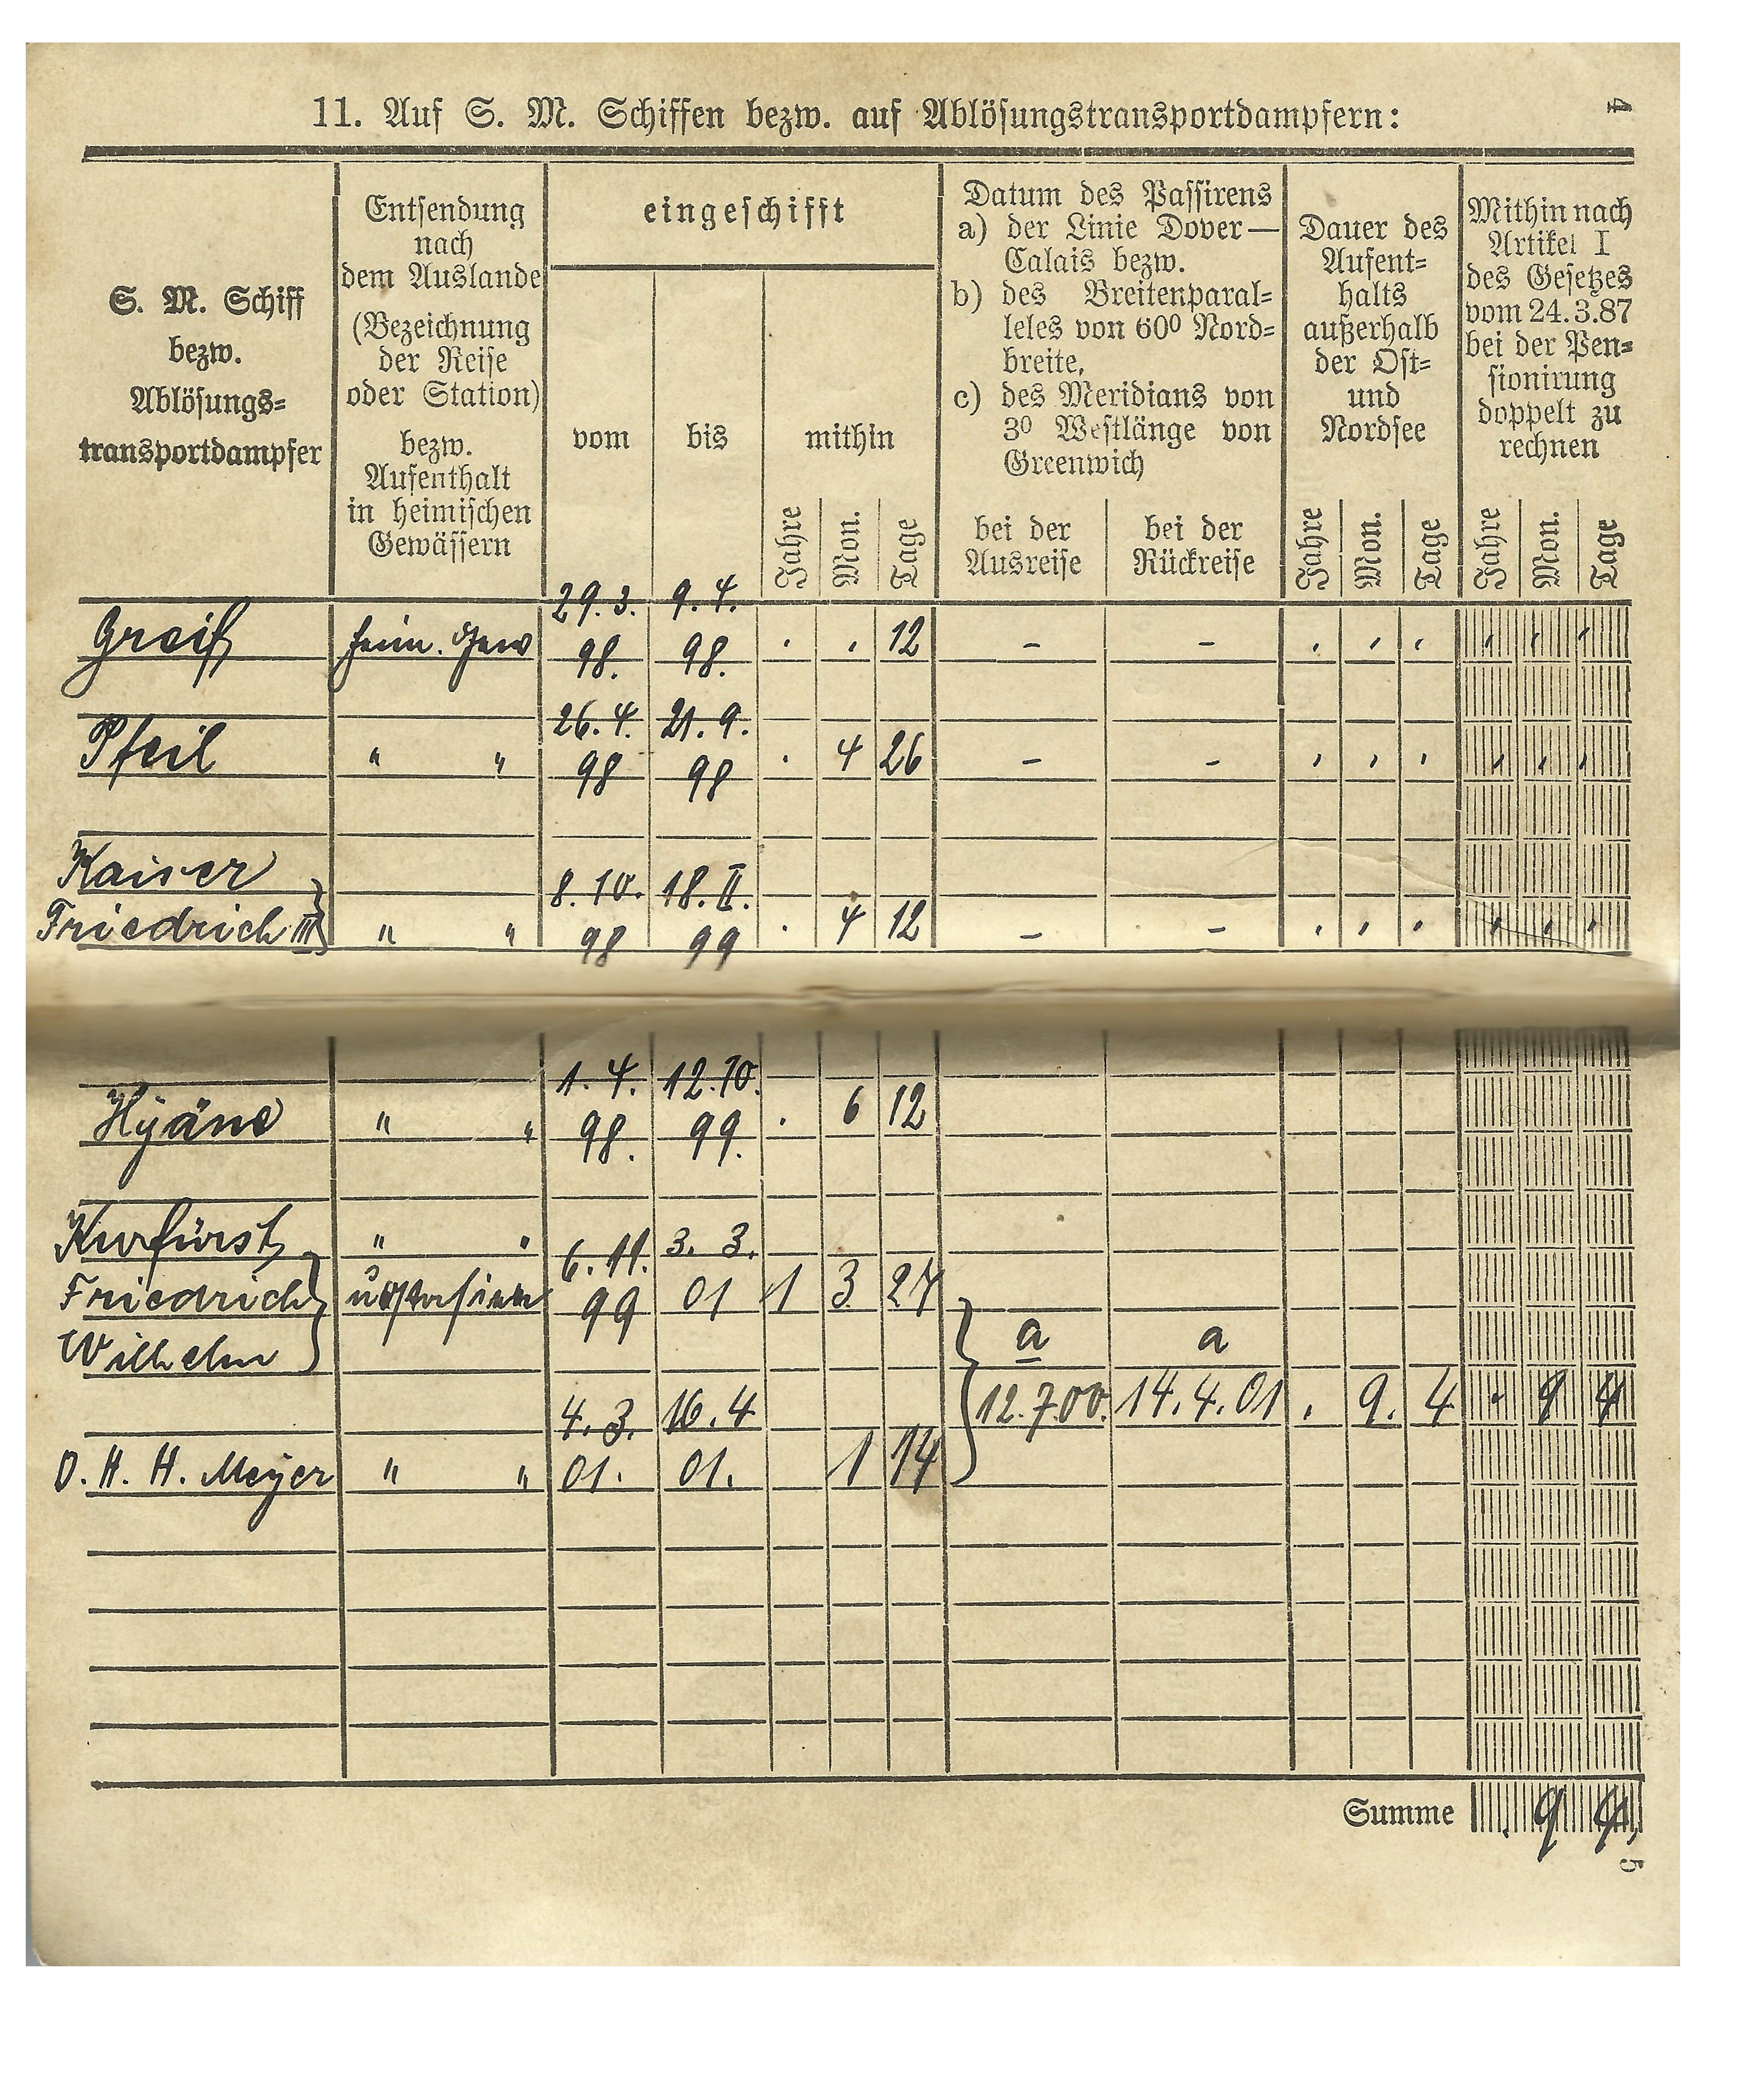 4
11. Auf S. M. Schiffen bezw. auf Ablösungstransportdampfern:
S. M. Schiff
bezw.
Ablösungs-
transportdampfer
Entsendung
nach
dem Auslande
(Bezeichnung
der Reise
oder Station)
bezw.
Aufenthalt
in heimischen
Gewässern
eingeschifft
vom bis mithin
Jahre Mon. Tage
Datum des Passirens
a) der Linie Dover—
Calais bezw.
b) des Breitenparal-
leles von 60⁰ Nord-
breite,
c) des Meridians von
3⁰ Westlänge von
Greenwich
bei der
Ausreise
bei der
Rückreise
Dauer des
Aufent-
halts
außerhalb
der Ost-
und
Nordsee
Jahre Mon. Tage
Mithin nach
Artikel I
des Gesetzes
vom 24.3.87
bei der Pen-
sionirung
doppelt zu
rechnen
Jahre Mon. Tage
29.3. 9.4.
Greif heim. Gew 98. 98. . . 12 – –
26.4. 21.9.
Pfeil " " 98 98 . 4 26 – –
Kaiser
8.10. 18.II.
Friedrich III " " 98 99 . 4 12 – –
1.4. 12.10.
Hyäne " " 98. 99. . 6 12
Kurfürst " " 6.11. 3.3.
Friedrich u Ostasien 99 01 1 3 27
Wilhelm a a
4.3. 16.4 12.7.00. 14.4.01 . 9. 4 . 9 4
D. H. H. Meyer " " 01. 01. 1 14
Summe 9 4
5